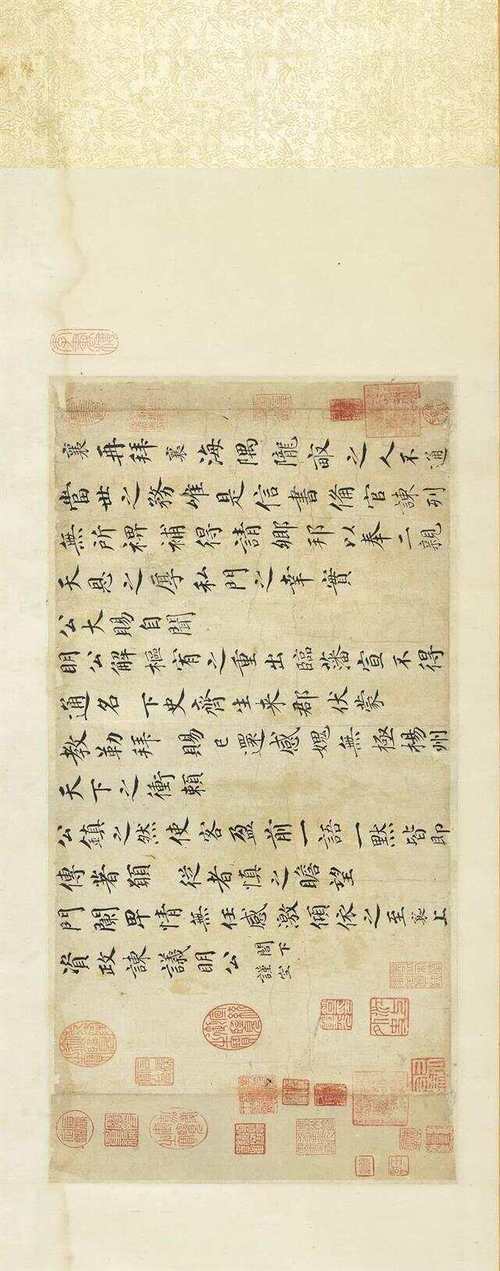 襄再拜襄海隅隴畝之人不通
當世之務唯是信書備官諫列
無所裨補得請鄉邦以奉二親
天恩之厚私門之幸實
公大賜自聞
明公解樞宥之重出臨藩宣不得
通名下史齊生来郡伏蒙
教勒拜賜已還感媿無極楊州
天下之衝賴
公鎮之然使客盈前一語一默皆即
傳著願從者慎之瞻望
門闌卑情無任感激傾依之至襄上
資政諫議明公閤下謹空